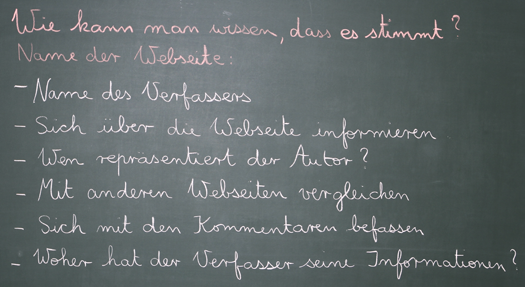 Wie kann man wissen, dass es stimmt?
Name der Webseite:
- Name des Verfassers
- Sich über die Webseite informieren
- Wen repräsentiert der Autor?
- Mit anderen Webseiten vergleichen
- Sich mit den Kommentaren befassen
- Woher hat der Verfasser seine Informationen?